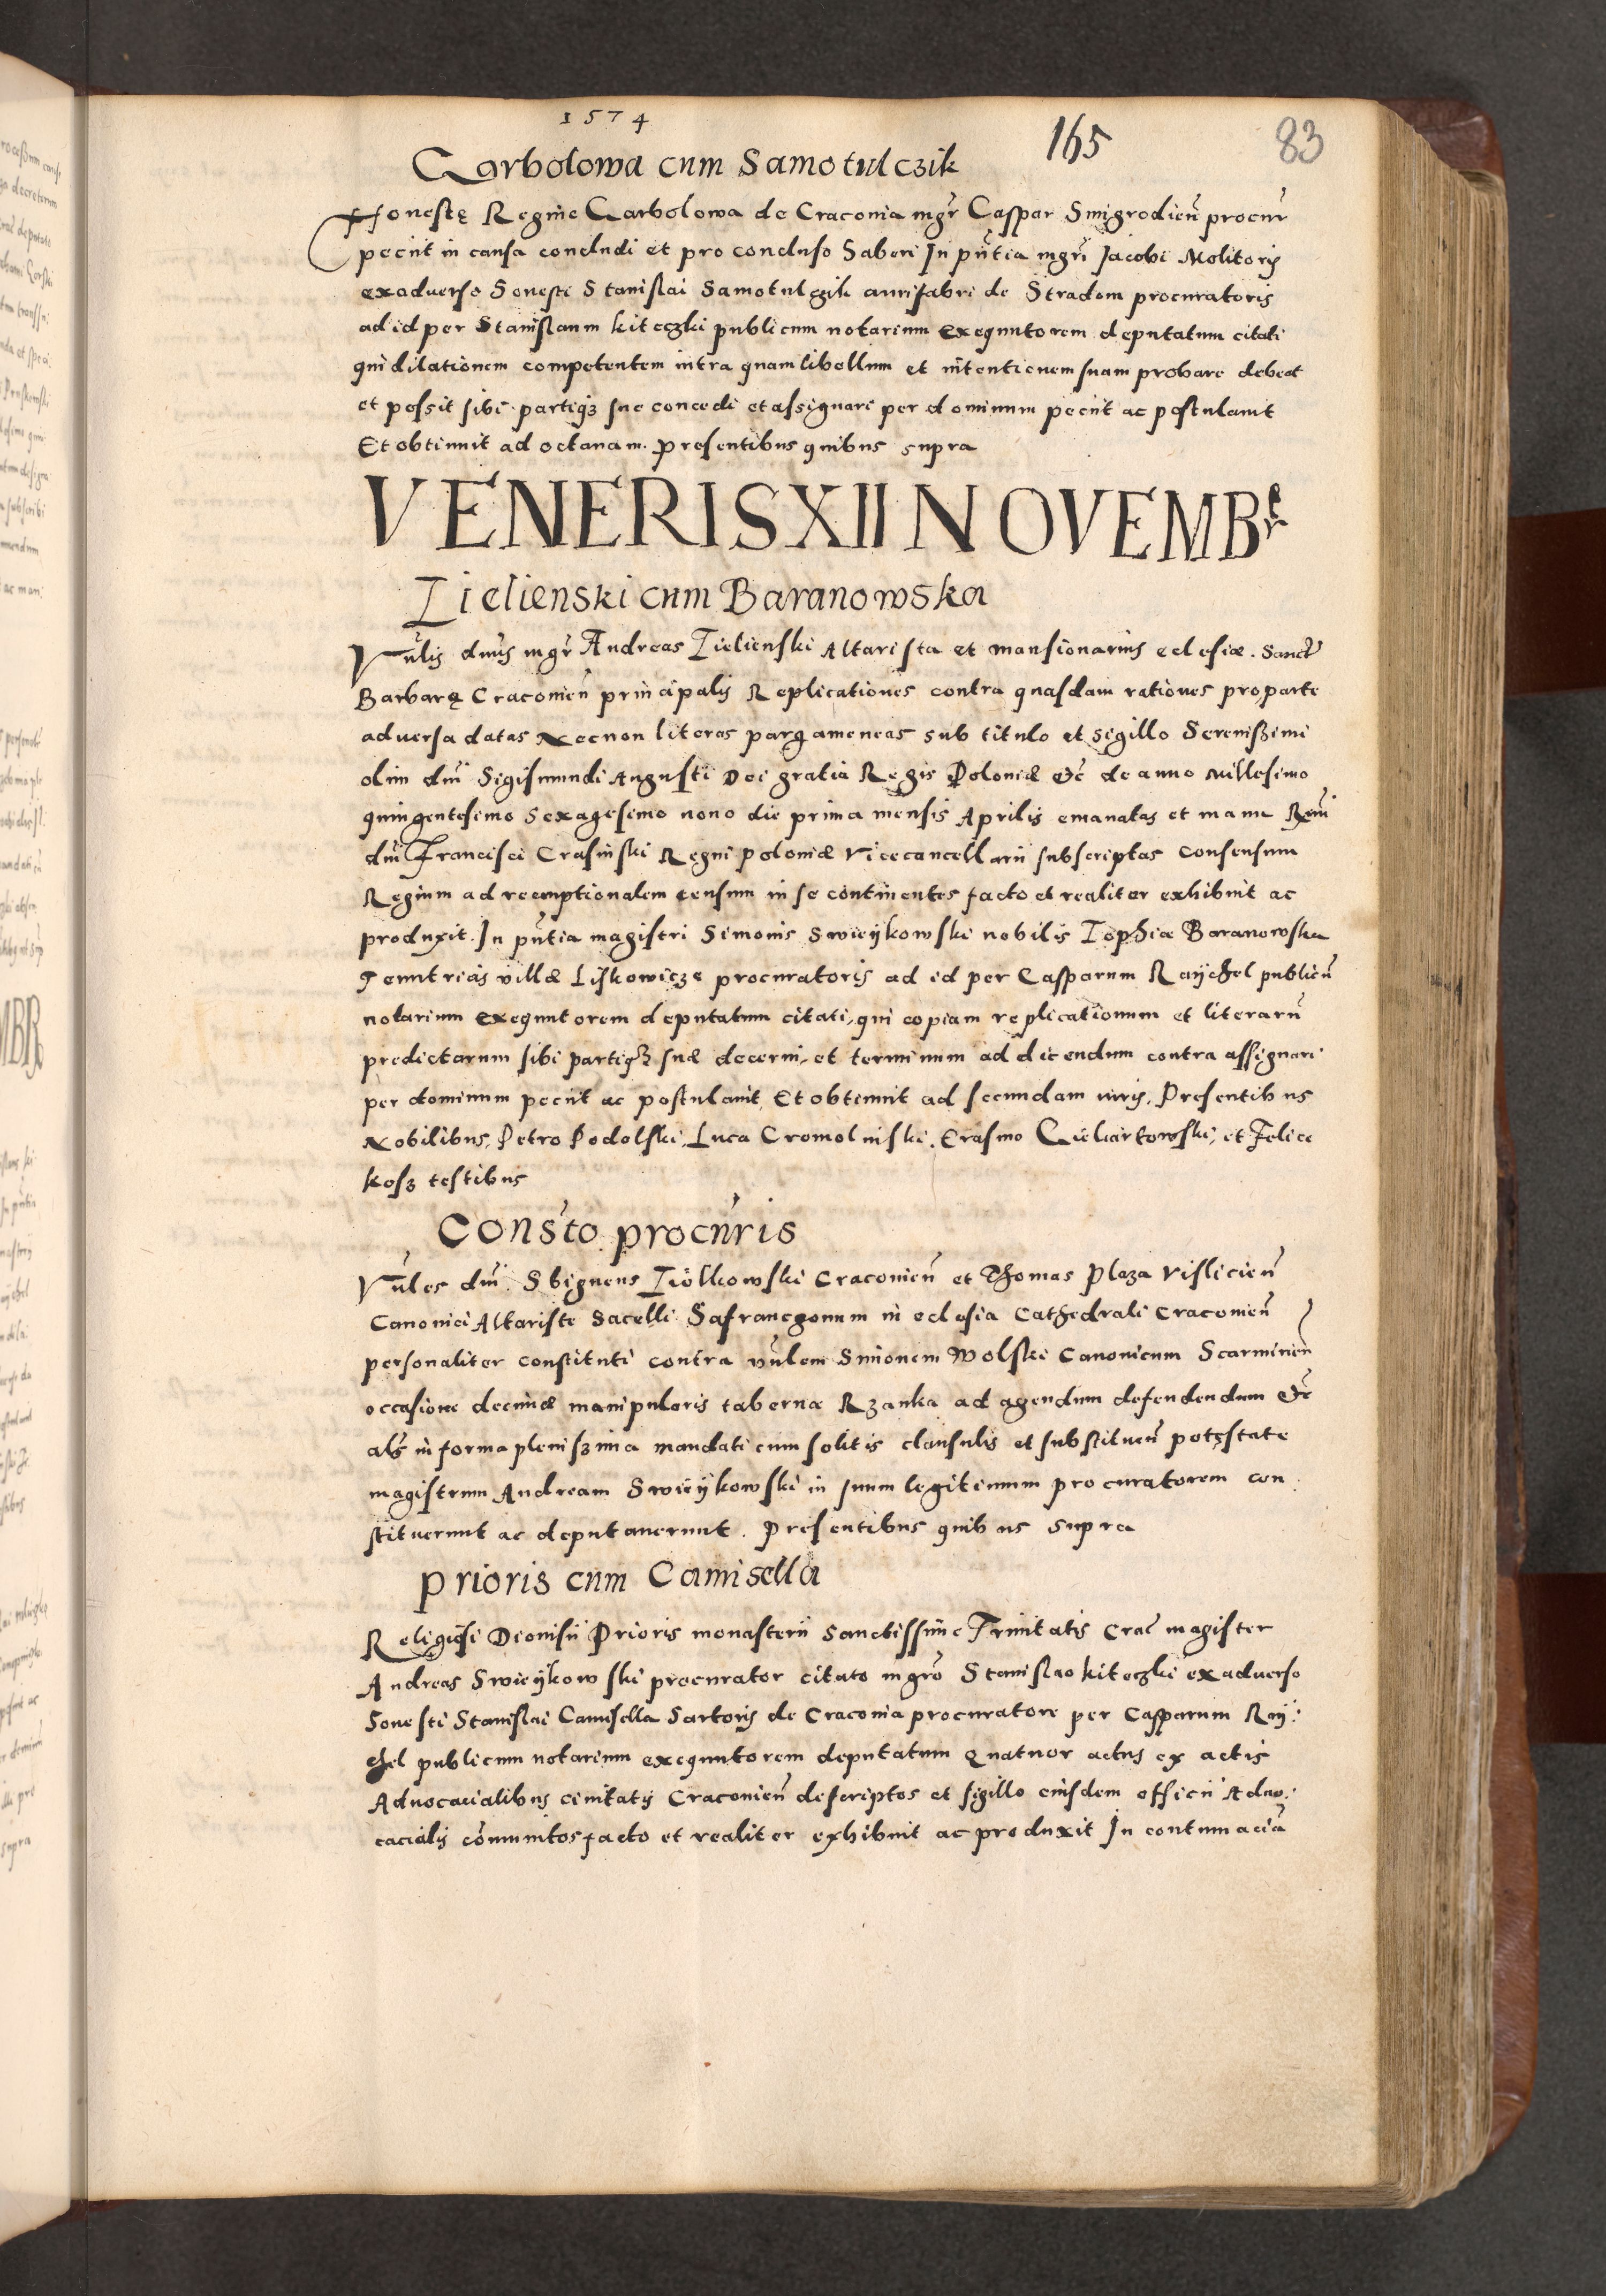 1574
165
83
Garbolowa cum Samotulczik
Honestę Regine Garbolowa de Craconia mgr̃ Caspar Smigrodien̄ procur̄
peciit in causa concludi et pro concluso haberi In pn̄tia mgrī Jacobi Molitoris
exadverso honesti Stanislai Samotulczik aurifabri de Stradom procuratoris
ad id per Stanislaum kiteczki publicum notarium exequutorem deputatum citati
qui dilationem competentem intra quam libellum et intentionem suam probare debeat
et possit sibi partiqz sue concedi et assignari per dominum peciit ac postulavit
Et obtinuit ad octavam. presentibus quibus supra
VENERIS XII NOVEMBr
Zielienski cum Baranowska
Vn̄lis dn̄us mgr̄ Andreas Zielienski Altarista et mansionarius eclesiæ Sanctę
Barbarę Cracouien̄ principalis Replicationes contra quasdam rationes pro parte
adversa datas Necnon literas pargameneas sub titulo et sigillo Sereniszimi
olim dn̄i Sigismundi Augusti Dei gratia Regis Poloniæ &c̄ de anno Millesimo
quingentesimo sexagesimo nono die prima mensis Aprilis emanatas et manu Rn̄di
dn̄i Francisci Crasinski Regni poloniæ Vicecancellarii subscriptas consensum
Regium ad reemptionalem censum in se continentes facto et realiter exhibuit ac
produxit. In pn̄tia magistri Simonis Swieykowski nobilis Zophiæ Baranowska
Tenutricis villæ Liskowicze procuratoris ad id per Casparum Raychel publicū
notarium exequutorem deputatum citati, qui copiam replicationum et literarū
predictarum sibi partiqz suæ decerni, et terminum ad dicendum contra assignari
per dominum peciit ac postulavit, Et obtinuit ad secundam iuris, Presentibus
Nobilibus, Petro Podolski, Luca Cromolinski, Erasmo Gieliartowski, et Felice
kosz testibus
Constō procuris
Vn̄les dn̄i Sbigneus Ziolkowski Cracouien̄ et Thomas Plaza Vislicien̄
Canonici Altariste Sacelli Safranczonum in eclesia Cathedrali Cracouien̄
personaliter constituti contra vn̄lem Simonem Wolski Canonicum Scarmirien̄
occasione decimæ manipularis tabernæ Rzanka ad agendum defendendum &c̄
als̄ in forma pleniszima mandati cum solitis clausulis et substituen̄ potęstate
magistrum Andream Swieykowski in suum legitimum procuratorem con
stituerunt ac deputaverunt. Presentibus quibus supra
Prioris cum Camisella
Religiosi Dionisii Prioris monasterii Sanctissime Trinitatis Crac̄ magister
Andreas Swieykowski procurator citato mgrō Stanislao kiteczki exadverso
honesti Stanislai Camisella Sartoris de Craconia procuratore per Casparum Ray:
chel publicum notarium exequutorem deputatum Quatuor actus ex actis
Advocatialibus civitatis Cracouien̄ descriptos et sigillo eiusdem officii Advo:
cacialis cōmunitos facto et realiter exhibuit ac produxit In contumaciā